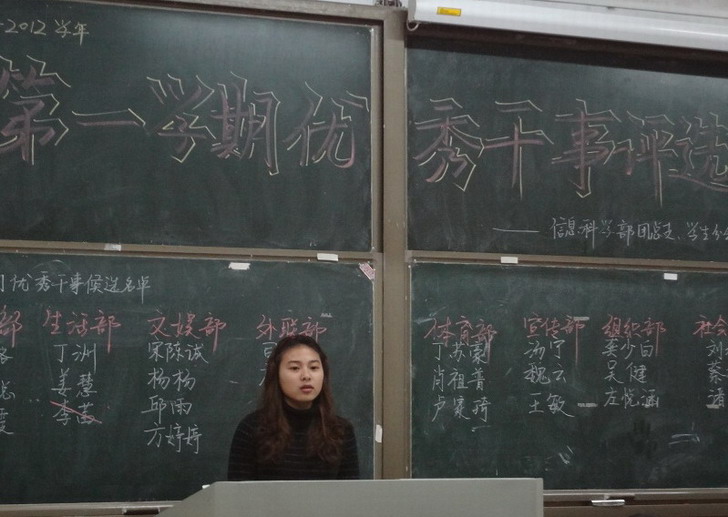 -2012学年
第一学期优秀干事评选
——信息科学部团总支、学生分会
优秀干事候选名单
部 生活部 文娱部 外联部 体育部 宣传部 组织部 社会
丁洲 宋陈诚 丁苏蒙 汤宁 姜少白 刘
姜慧 杨杨 肖祖菁 魏云 吴健 秦
李茜 邱雨 卢豪琦 王敏 左悦涵
方婷婷